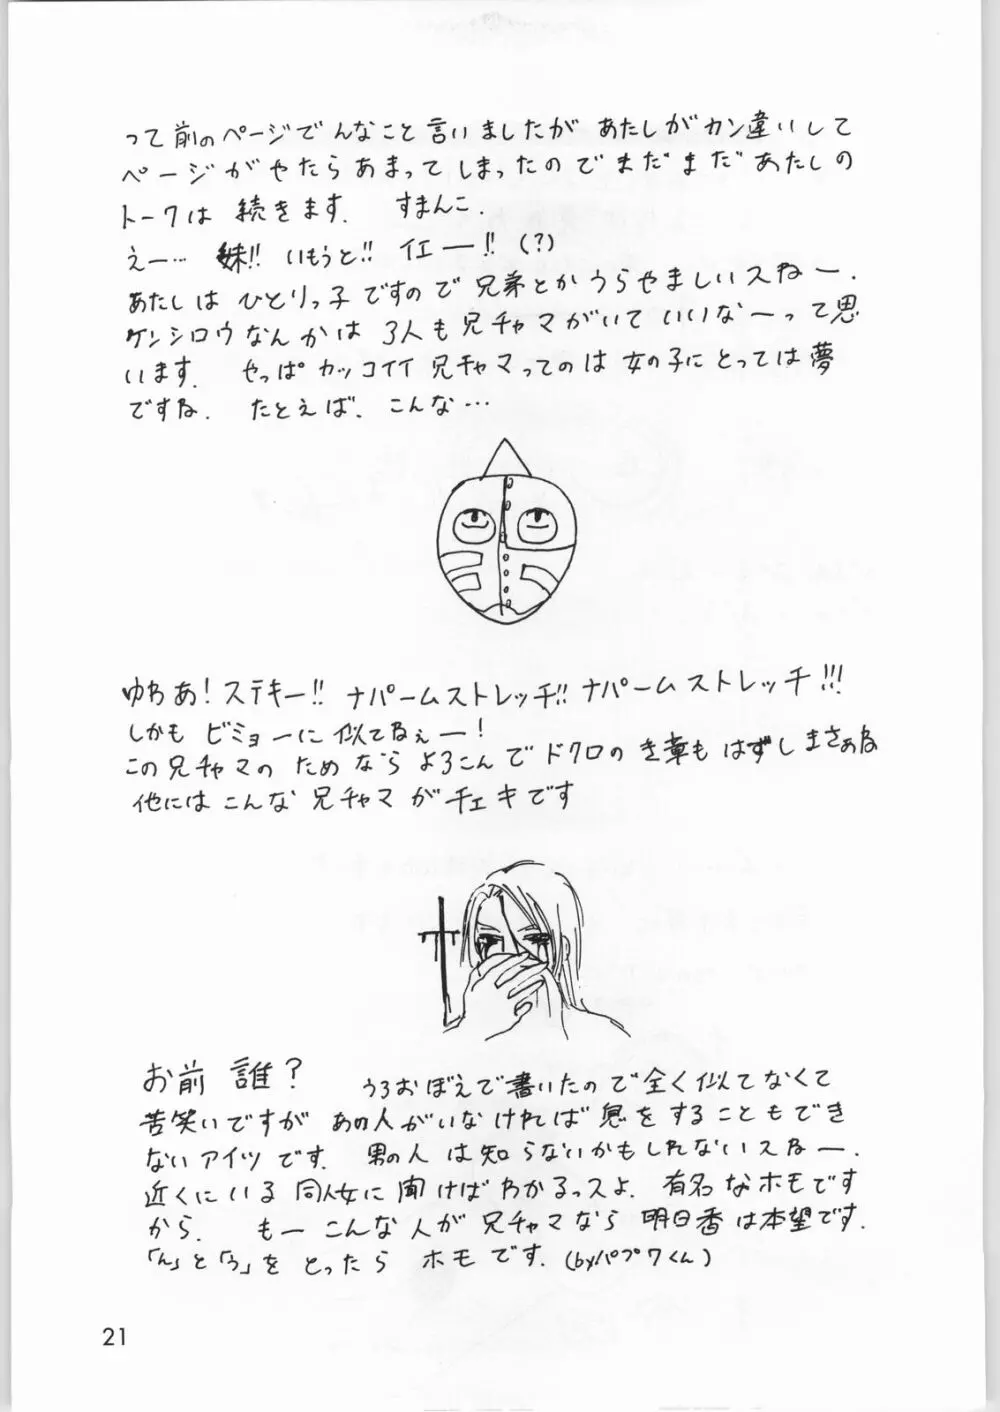 って前のページでんなこと言いましたが あたしがカン違いして
ページがやたらあまってしまったのでまだまだあたしの
トークは 続きます. すまんこ.
えー… 妹!! いもうと!! イエー!! (?)
あたしは ひとりっ子ですので兄弟とかうらやましいスねー.
ケンシロウなんかは 3人も兄チャマがいていいなーって思
います. やっぱカッコイイ兄チャマってのは女の子にとっては夢
ですね. たとえば、こんな…
ゆらあ! ステキー!! ナパームストレッチ!! ナパームストレッチ!!!
しかも ビミョーに 似てねぇー!
この兄チャマの ためなら よろこんで ドクロの き章も はずしまさぁね
他には こんな 兄チャマ が チェキです
お前 誰?
うろおぼえで書いたので全く似てなくて
苦笑いですが あの人がいなければ 息をすることもでき
ないアイツです. 男の人は知らないかもしれないスねー.
近くにいる 同人女に聞けばわかるっスよ. 有名なホモです
から. もーこんな人が兄チャマなら 明日香は本望です.
「ん」と「う」を とったら ホモです. (byパプワくん)
21